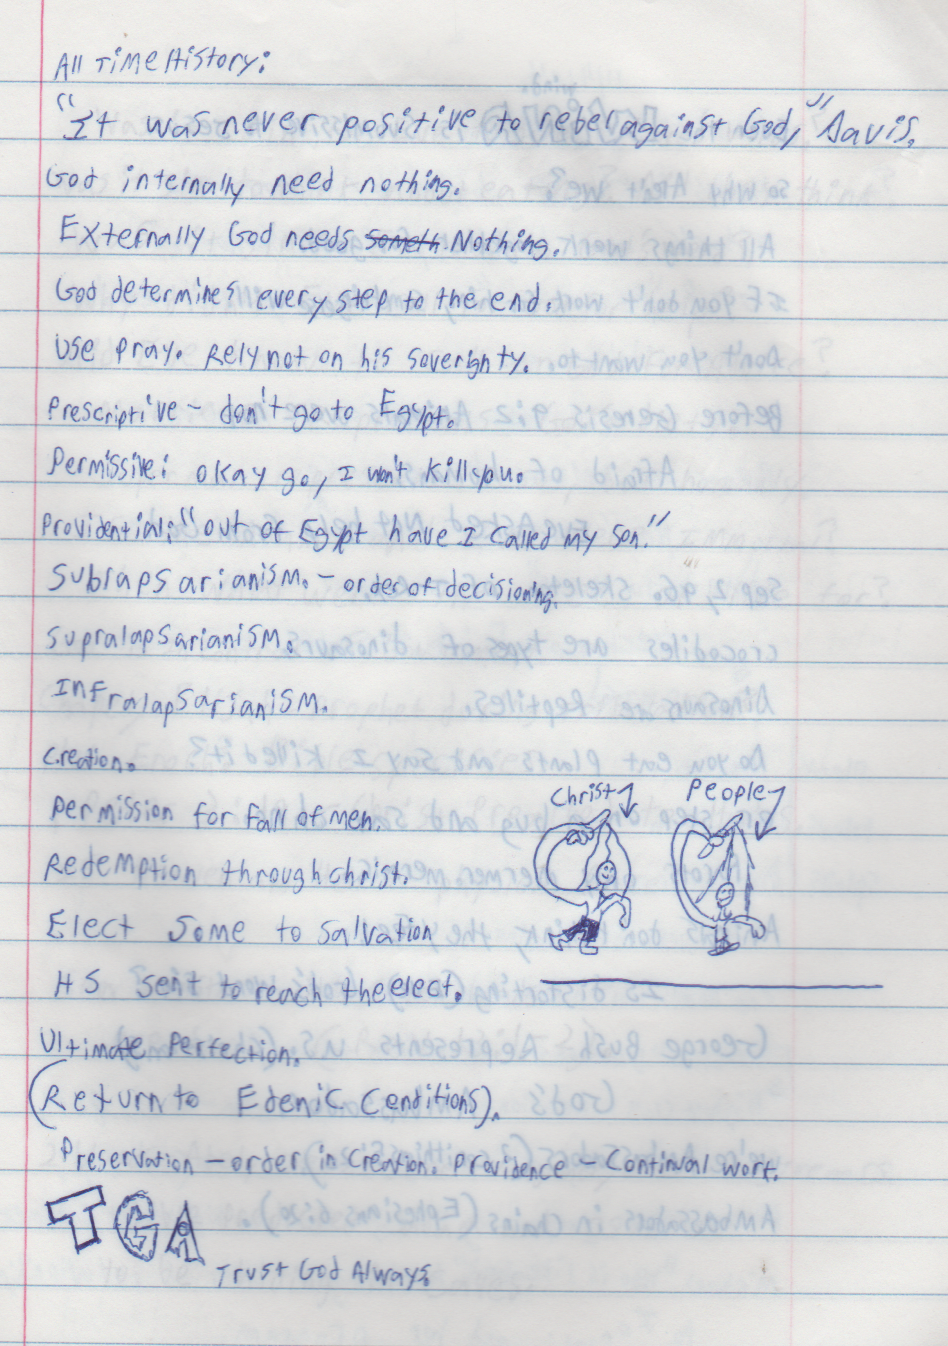 All Time History:
"It was never positive to rebel against God," Davis.
God internally need nothing.
Externally God needs someth Nothing.
God determines every step to the end.
Use pray. Rely not on his soverignty.
Prescriptive - don't go to Egypt.
Permissive: okay go, I won't kill you.
Providential: "out of Egypt have I called my son."
Sublapsarianism. - order of decisioning.
Supralapsarianism.
Infralapsarianism.
Creation.
Christ People
Permission for fall of men.
Redemption through christ.
Elect some to salvation
HS sent to reach the elect.
Ultimate Perfection.
(Return to Edenic Conditions).
Preservation - order in creation. Providence - Continual work.
TGA
Trust God Always.